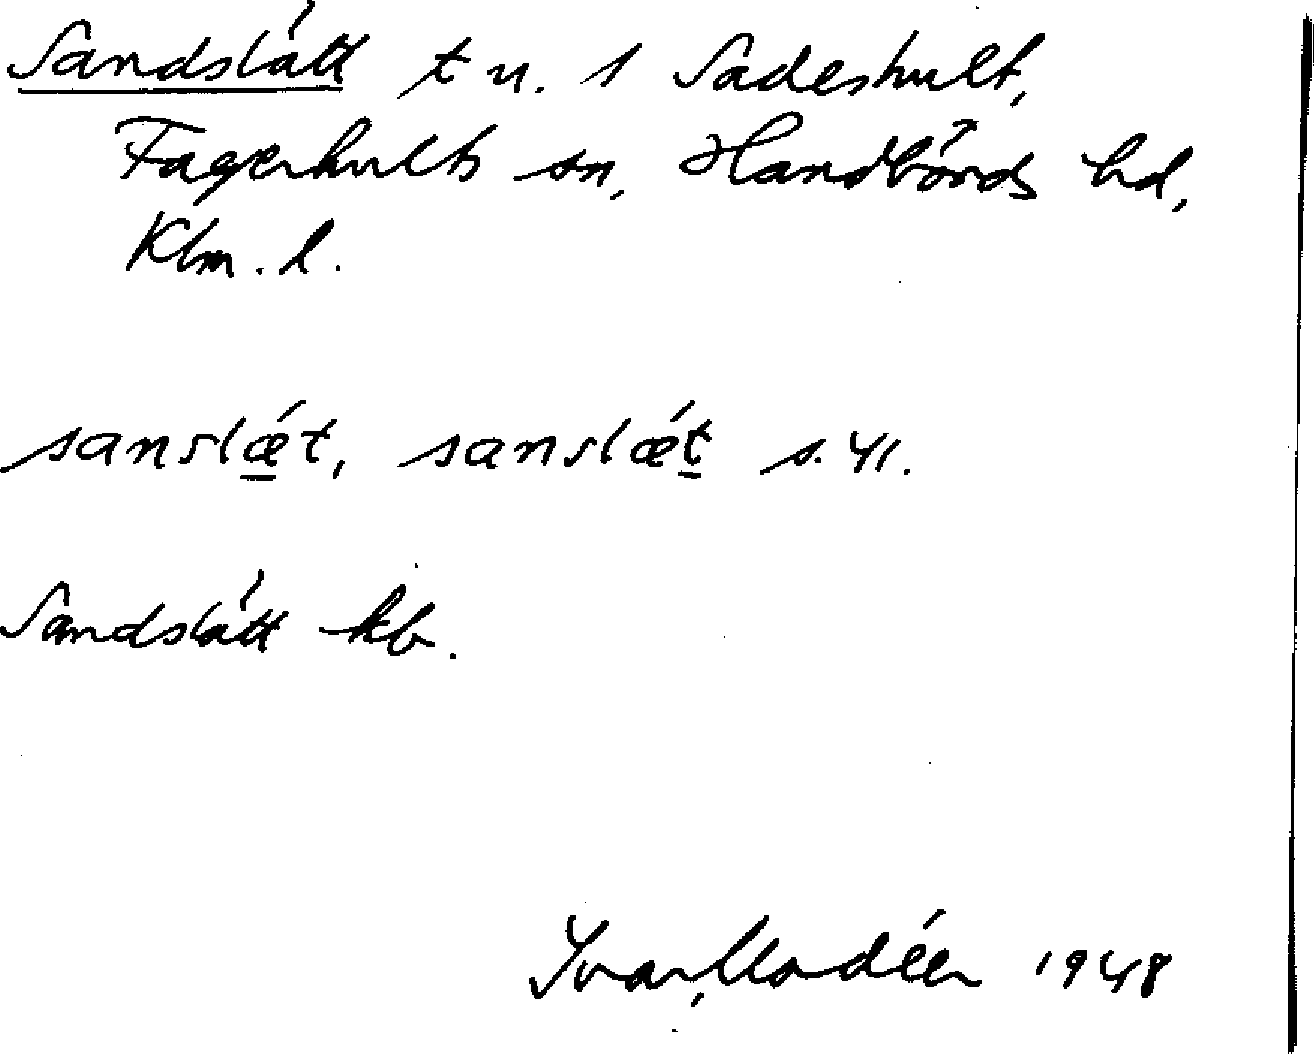 Sandslätt t u. 1 Sadeshult,
Fagerhults sn, Handbörds hd,
Klm. l.
sanslǽ̱t, sanslǽṯ s. 41.
Sandslätt kb.
Ivar Modéer 1948